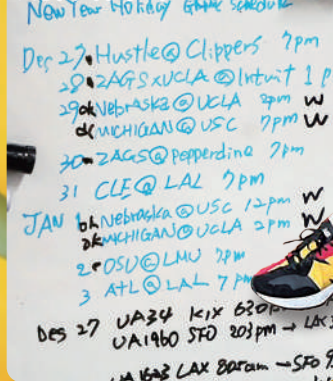 New Year Holiday Game Schedule
Dec 27 Hustle @ Clippers 7pm
28 ZAGS x UCLA @ Intuit 1 p
29 ok Nebraska @ UCLA 2pm W
ok MICHIGAN @ USC 7pm W
30 ZAGS @ Pepperdine 7pm
31 CLE @ LAL 7pm
JAN 1 ok Nebraska @ USC 12pm W
ok MICHIGAN @ UCLA 2pm W
2 OSU @ LMU 7pm
3 ATL @ LAL 7pm
Des 27 UA34 KIX 630p
UA1960 SFO 203pm → LAX
LAX 805am → SFO 9